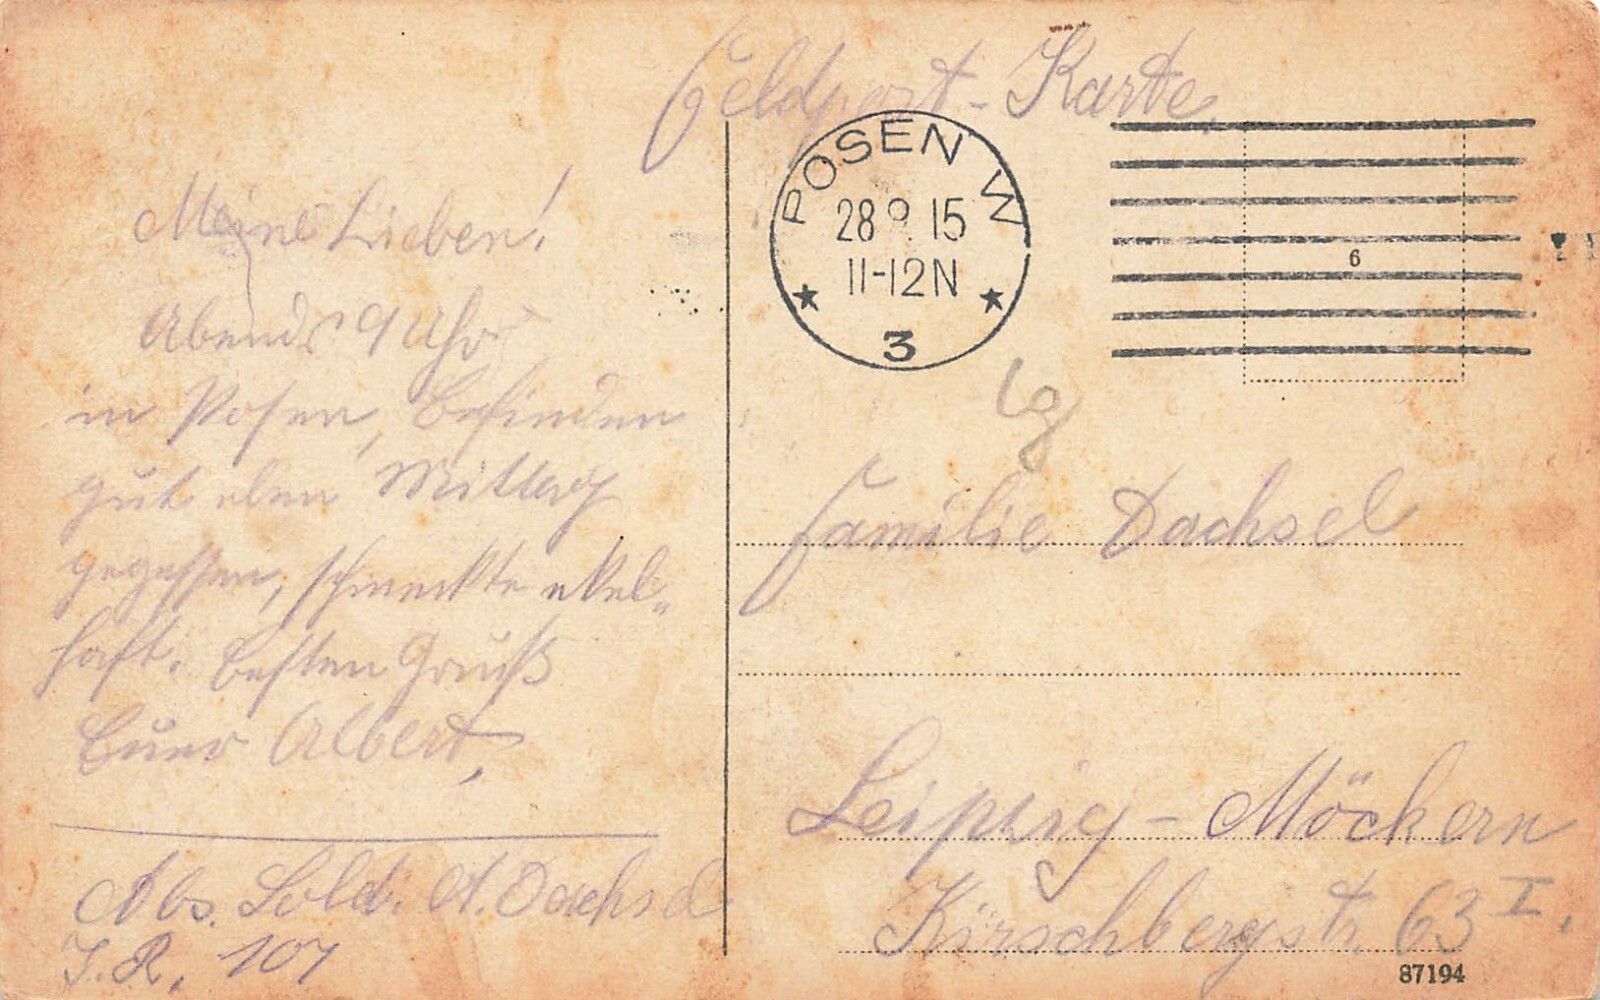 Feldpost-Karte.
POSEN W
28 9. 15
11-12N
★ 3 ★
6
Meine Lieben!
Abends 9 Uhr
in Posen, befinden
gut eben Mittag
gegessen, schmeckte ekel-
haft. besten Gruß
Euer Albert,
Abs. Sold. A. Dachsel
I. R. 107
Lg
Familie Dachsel
Leipzig - Möckern
Kirschbergstr. 63 I.
87194